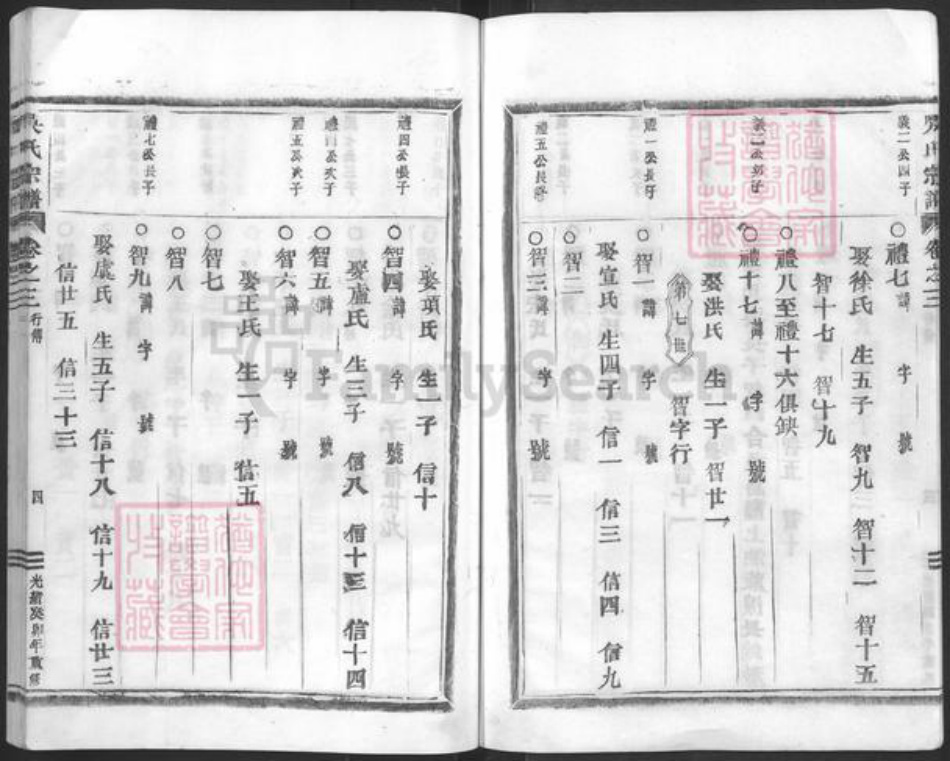 義二公四子
○禮七諱 字 號
娶徐氏 生五子 智九 智十二 智十五
智十七 智十九
○禮八至禮十六俱缺
○禮十七諱 字 號
娶洪氏 生一子 智廿一
第七世 智字行
禮一公長子
○智一諱 字 號
娶宣氏 生四子 信一 信三 信四 信九
○智二
禮五公長子
○智三諱 字 號
娶項氏 生一子 信十
禮四公長子
○智四諱 字 號
娶盧氏 生三子 信八 信十三 信十四
禮四公次子
○智五諱 字 號
禮五公次子
○智六諱 字 號
娶王氏 生一子 信五
○智七
○智八
禮七公長子
○智九諱 字 號
娶虞氏 生五子 信十八 信十九 信廿三
信廿五 信三十三
氏宗譜 卷之三 行傳 四 光緒癸卯年重修
FamilySearch